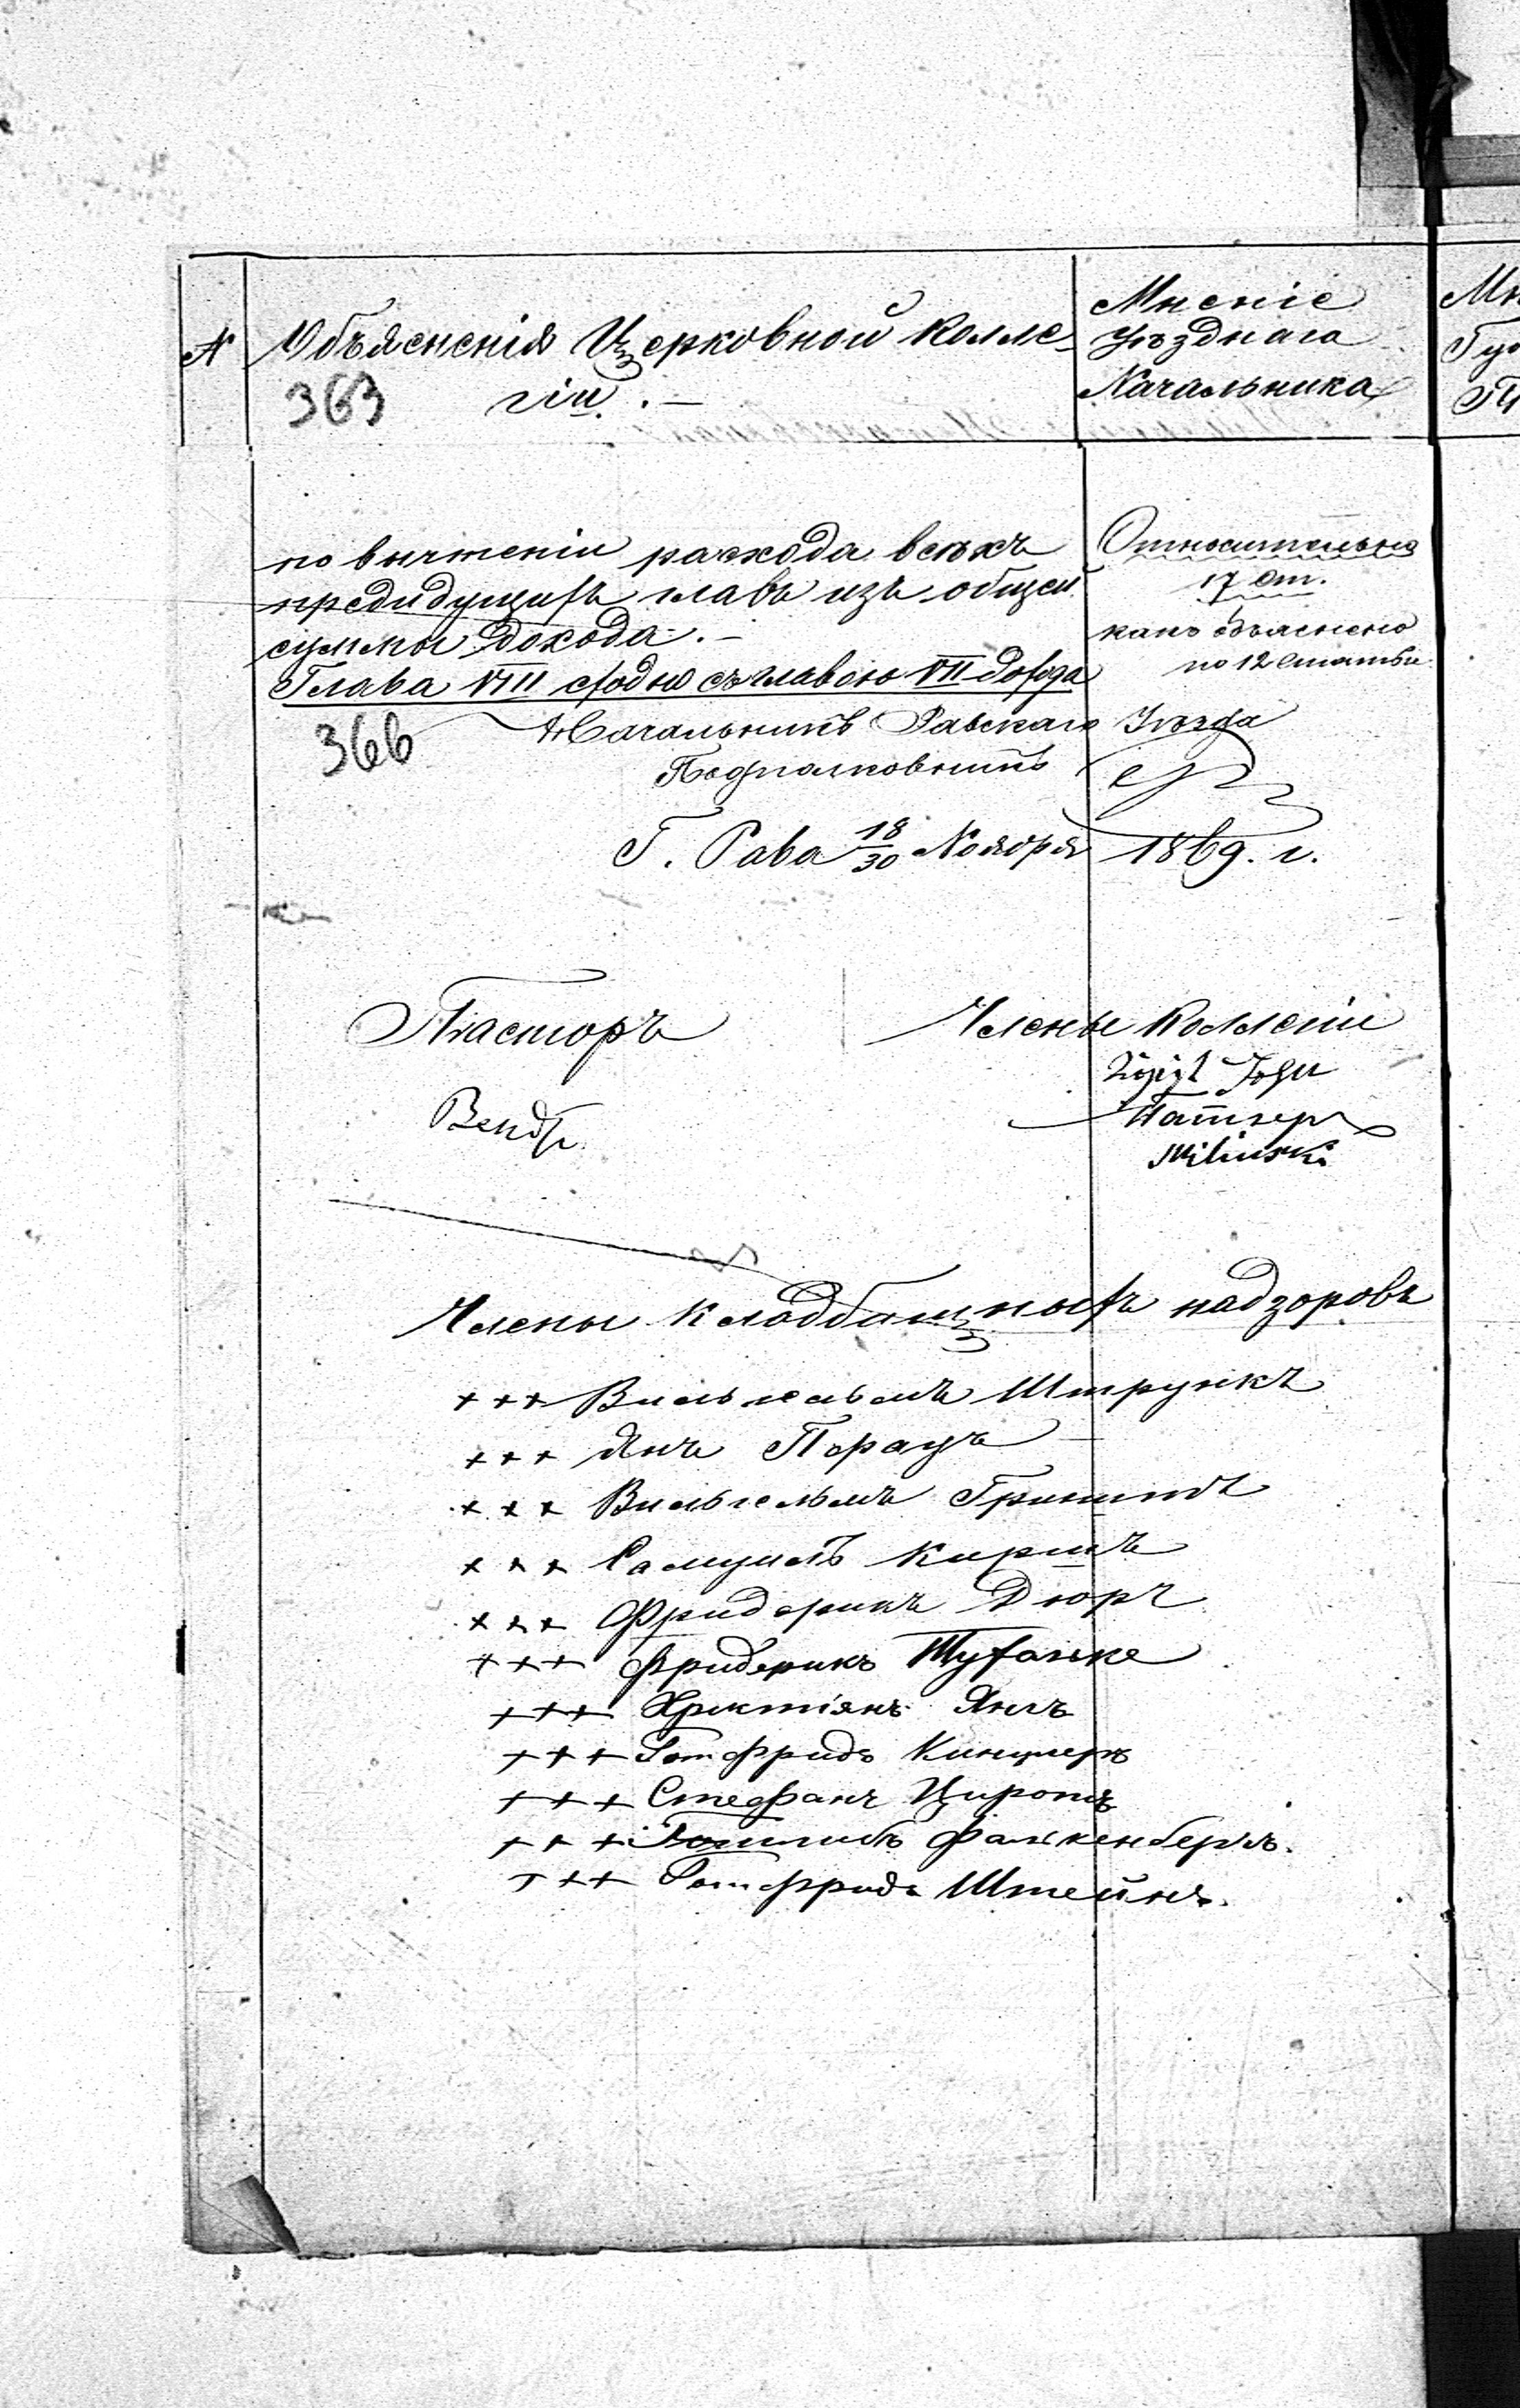 №
Объясненія Церковной Колле-
гіи. —
363
Мненіе
Уѣзднаго
Начальника
по вычтеніи расхода всѣхъ
предидущихъ главъ изъ общей
суммы дохода. —
Глава VIII сходно съ главою VII дохода
Относительно
17 ст.
какъ объяснено
по 12 статьи.
366
Начальникъ Равскаго Уѣзда
Подполковникъ
Г. Рава 18/30 Ноября 1869. г.
Пасторъ
Члены Коллегіи
Вендтъ
Milinski
Члены Кладбищныхъ надзоровъ
+++ Вильгельмъ Штрункъ
+++ Янъ Порацъ
+++ Вильгельмъ
+++ Самуилъ Киршъ
+++ Фридерикъ Дюръ
+++ Фридерикъ Тухолке
+++ Христіянъ
+++ Готфридъ
+++ Стефанъ
+++ Готлибъ Фалькенбергъ.
+++ Готфридъ Штейнъ.